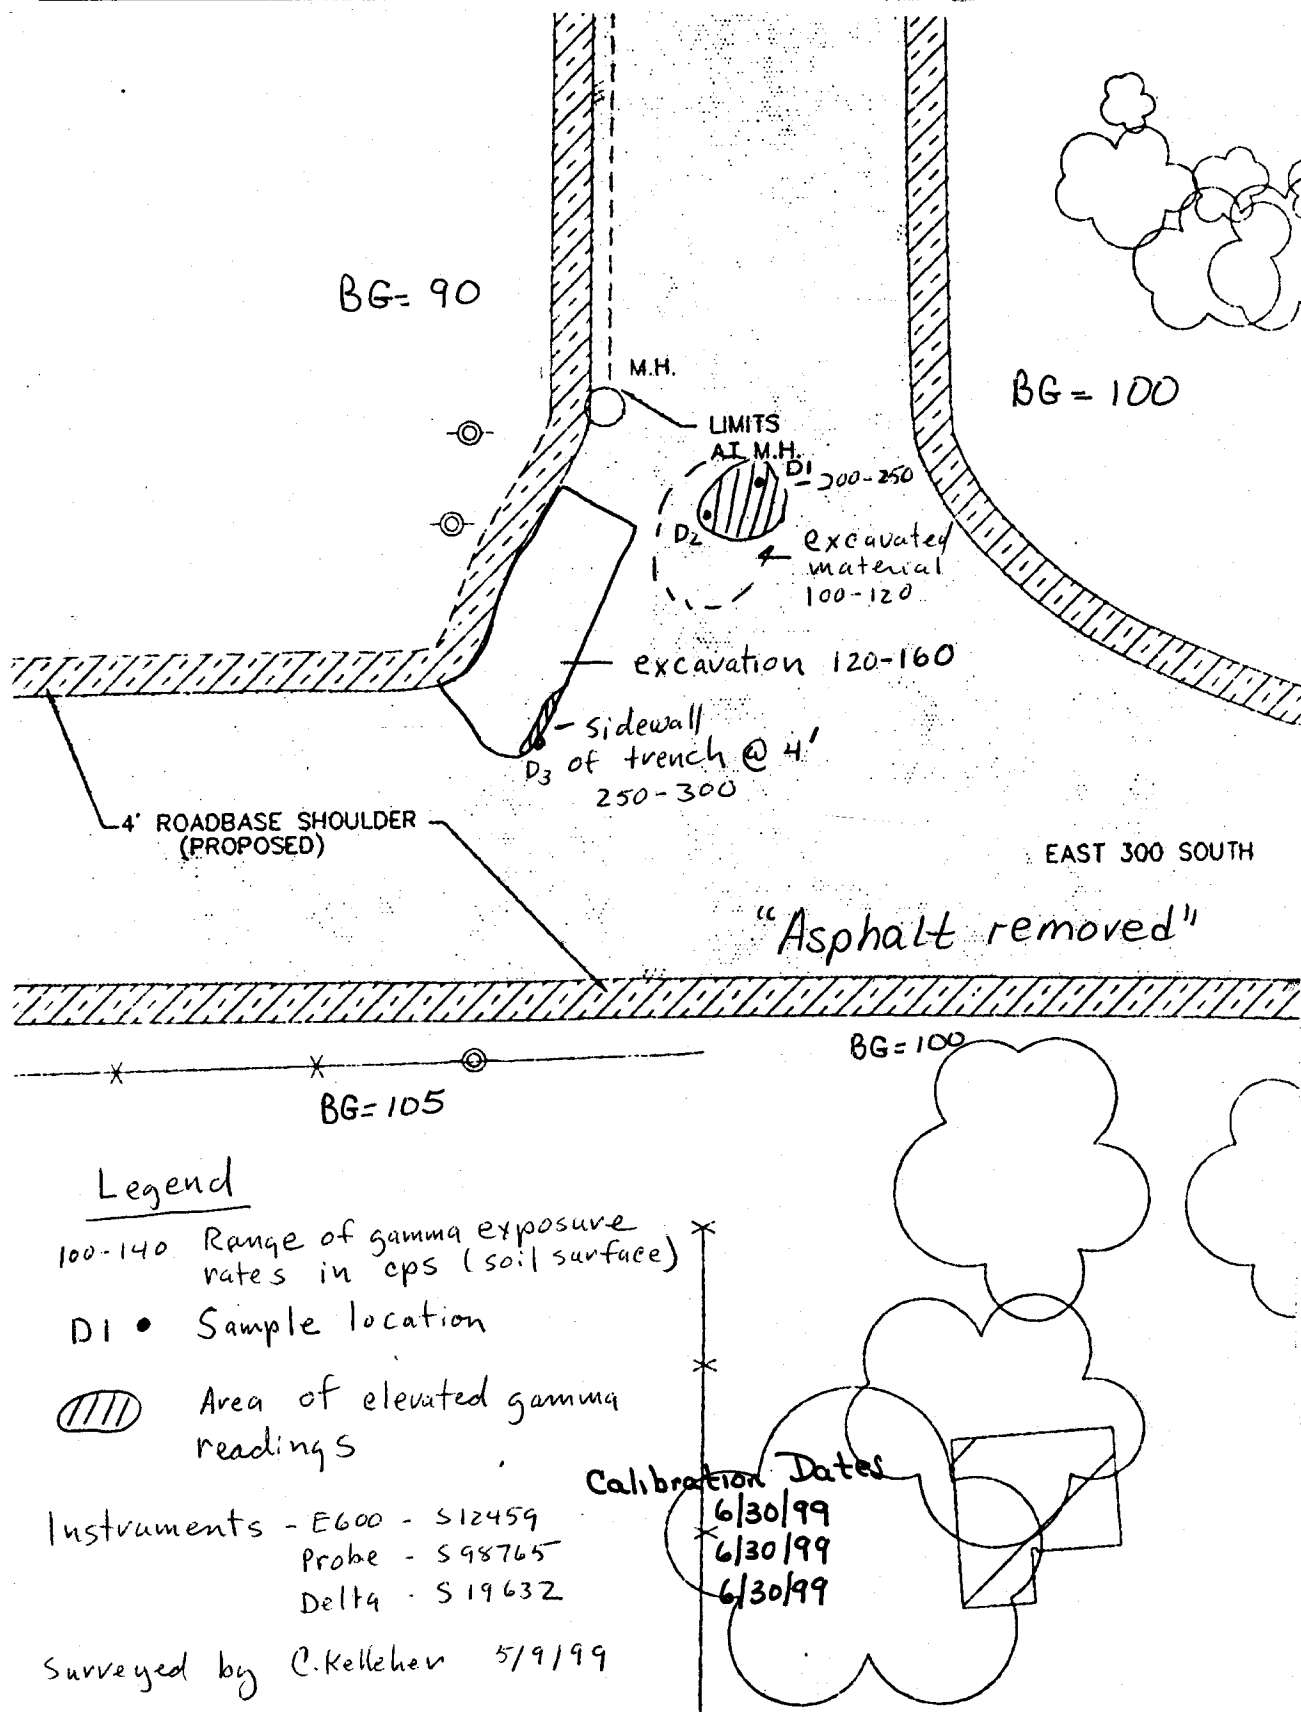 BG= 90
M.H.
BG = 100
LIMITS
AT M.H.
D1
200-250
D2
excavated
material
100-120
excavation 120-160
sidewall
of trench @ 4'
D3
250-300
4' ROADBASE SHOULDER
(PROPOSED)
EAST 300 SOUTH
"Asphalt removed"
BG=100
BG=105
Legend
100-140 Range of gamma exposure
rates in cps (soil surface)
D1 • Sample location
Area of elevated gamma
readings
Calibration Dates
Instruments - E600 - S12459 6/30/99
Probe - S98765 6/30/99
Delta - S19632 6/30/99
Surveyed by C.Kelleher 5/9/99